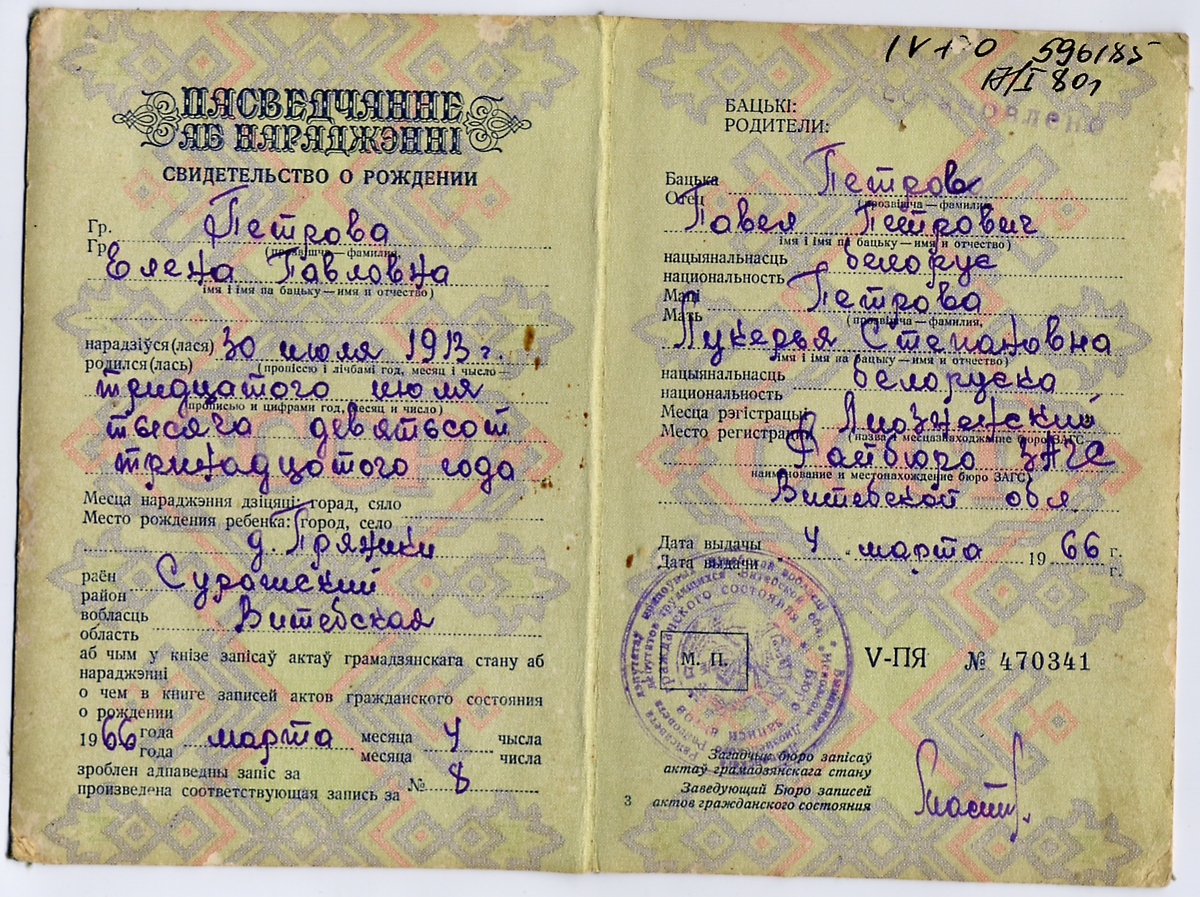 ПАСВЕДЧАННЕ
АБ НАРАДЖЭННІ
СВИДЕТЕЛЬСТВО О РОЖДЕНИИ
Гр. Петрова
Гр.
(прозвішча—фамилия,
Елена Павловна
імя і імя па бацьку—имя и отчество)
нарадзіўся(лася) 30 июля 1913 г.
родился(лась) (пропіссю і лічбамі год, месяц і чысло—
тридцатого июля
прописью и цифрами год, месяц и число)
тысяча девятьсот
тринадцатого года
Месца нараджэння дзіцяці: горад, сяло
Место рождения ребенка: город, село
д. Пряники
раён Сурашский
район
вобласць Витебская
область
аб чым у кнізе запісаў актаў грамадзянскага стану аб
нараджэнні
о чем в книге записей актов гражданского состояния
о рождении
1966 года марта месяца 4 чысла
года месяца числа
зроблен адпаведны запіс за
произведена соответствующая запись за № 8
596185
801
БАЦЬКІ:
РОДИТЕЛИ:
Бацька Петров
Отец (прозвішча—фамилия,
Павел Петрович
імя і імя па бацьку—имя и отчество)
нацыянальнасць белорус
национальность
Маці Петрова
Мать (прозвішча—фамилия,
Лукерья Степановна
імя і імя па бацьку—имя и отчество)
нацыянальнасць белоруска
национальность
Месца рэгістрацыі Лиозненский
Место регистрации (назва і месцазнаходжанне бюро ЗАГС
Райбюро ЗАГС
наименование и местонахождение бюро ЗАГС)
Витебской обл.
Дата выдачы 4 марта 1966 г.
Дата выдачи г.
М. П.
V-ПЯ № 470341
Загадчык бюро запісаў
актаў грамадзянскага стану
Заведующий Бюро записей
актов гражданского состояния
3